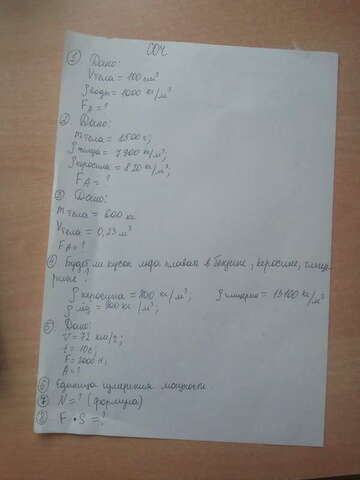 СОЧ
① Дано:
Vтела = 100 см³
ρводы = 1000 кг/м³
FA = ?
② Дано:
mтела = 1500 г;
ρ = 7900 кг/м³;
ρкеросина = 820 кг/м³;
FA = ?
③ Дано:
mтела = 600 кг
Vтела = 0,23 м³
FA = ?
④ Будет ли кусок льда плавать в бензине, керосине, глице-
рине?
ρкеросина = 800 кг/м³; ρглицерина = кг/м³
ρльда = 900 кг/м³;
⑤ Дано:
V = 72 км/ч;
t = 10 с;
F = 2000 Н;
A = ?
⑥ Единица измерения мощности.
⑦ N = ? (формула)
⑧ F • S = ?